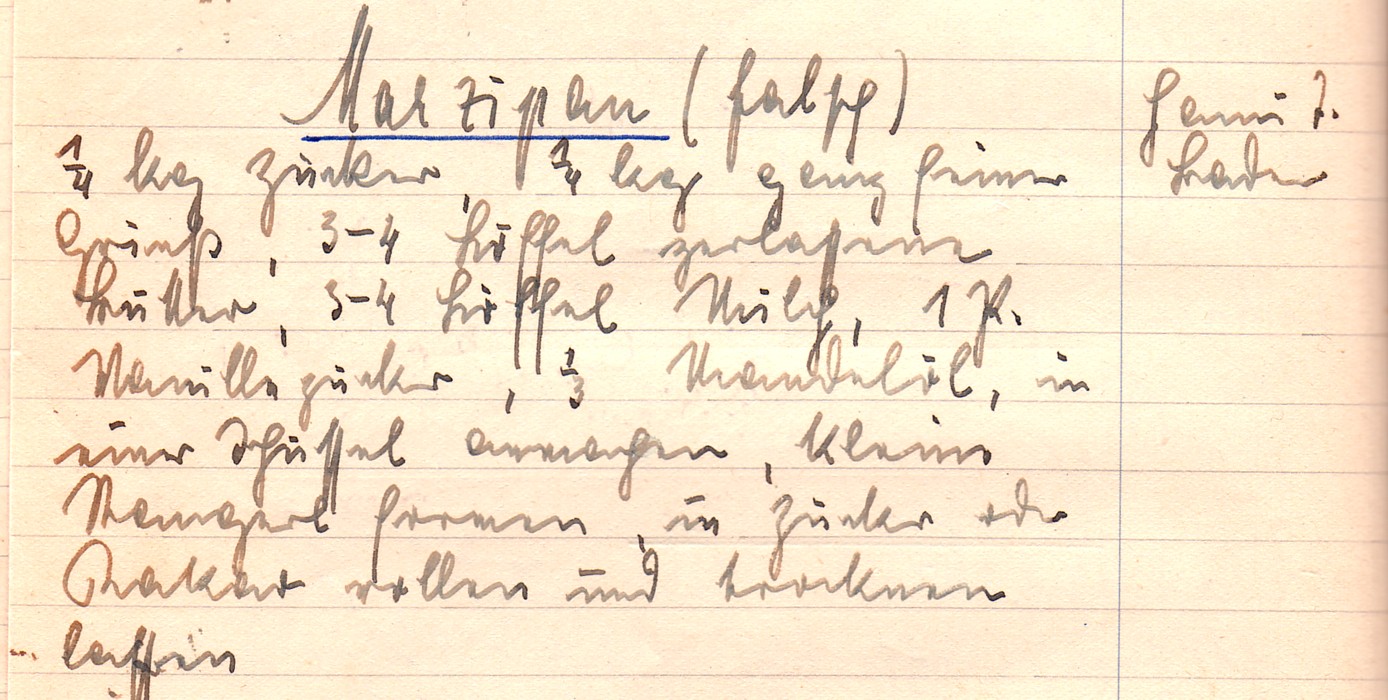 Marzipan (falsch)
¼ kg Zucker, ¼ kg ganz feiner
Grieß, 3-4 Löffel zerlassene
Butter, 3-4 Löffel Milch, 1 P.
Vanillezucker, ⅓ Mandelöl, in
einer Schüssel, kleine
Stangerl formen, in Zucker oder
Kakao rollen und trocknen
lassen